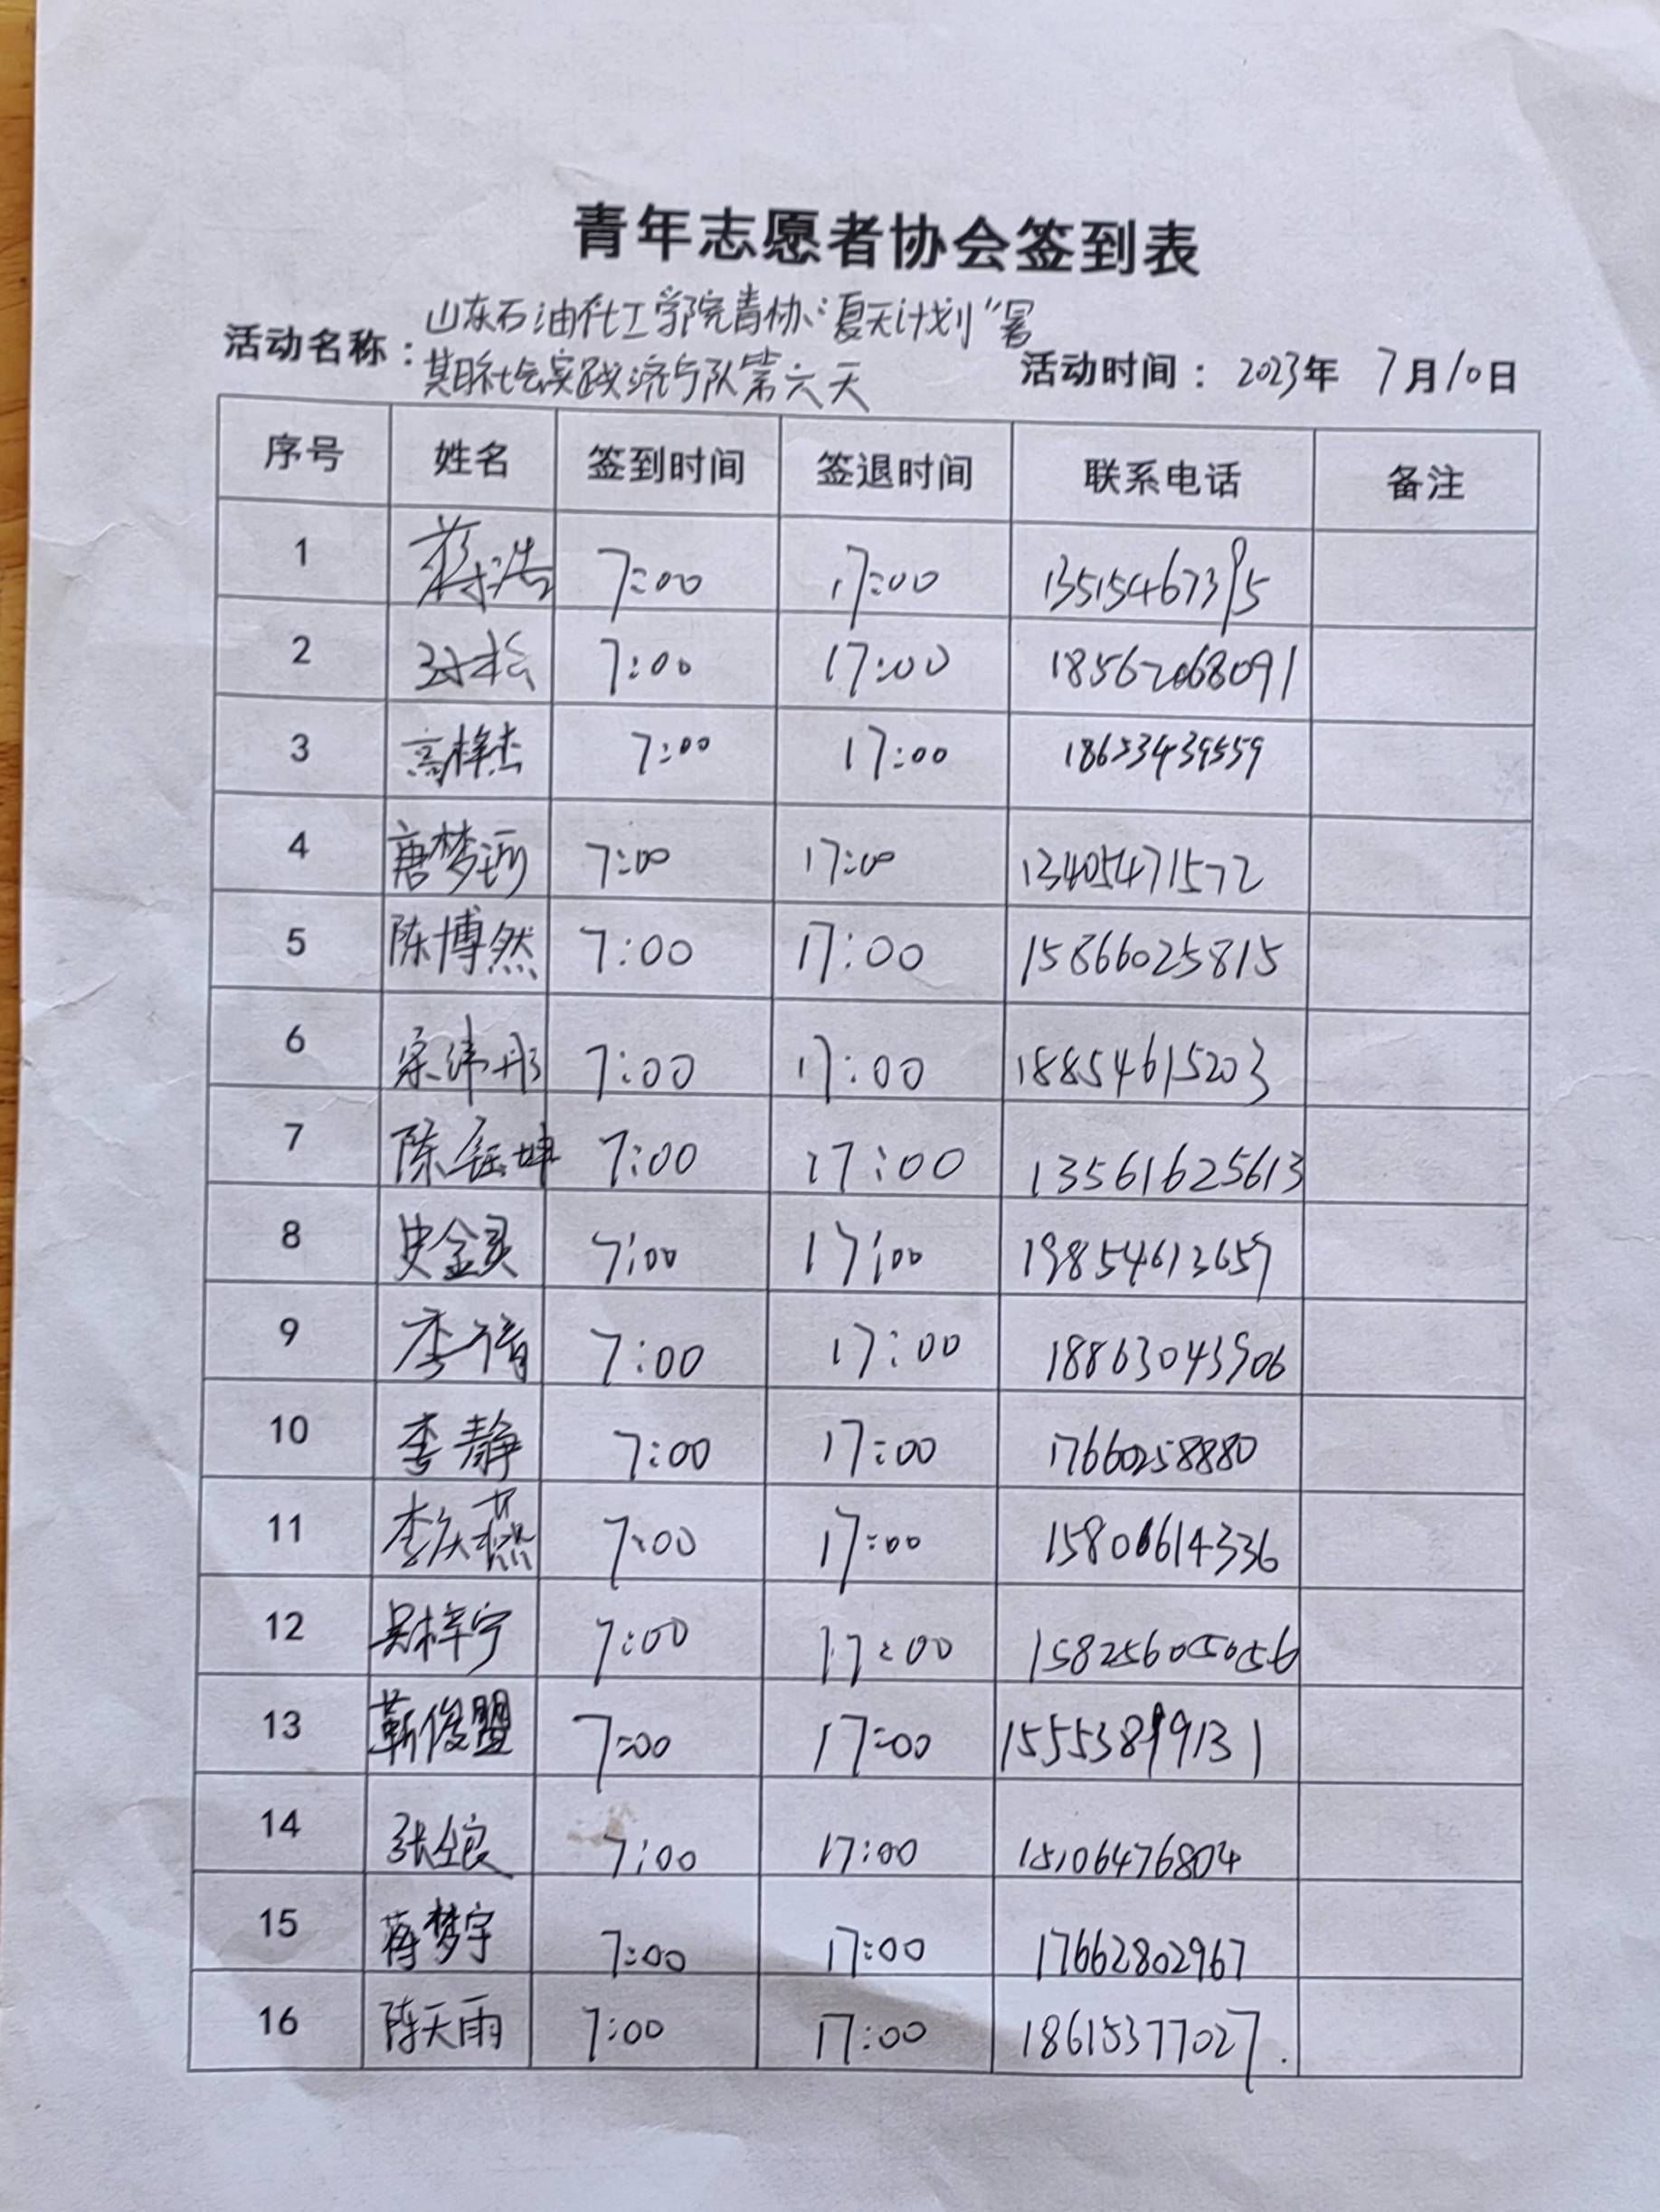 青年志愿者协会签到表
活动名称：山东石油化工学院青协“夏天计划”暑
期社会实践济宁队第六天 活动时间：2023年 7月10日
序号 姓名 签到时间 签退时间 联系电话 备注
1 7:00 17:00 13515467395
2 孙松 7:00 17:00 18562068091
3 高梓杰 7:00 17:00
4 唐梦珂 7:00 17:00 13405471572
5 陈博然 7:00 17:00 15866025815
6 宋纬彤 7:00 17:00 18854615203
7 7:00 17:00 13561625613
8 史金灵 7:00 17:00 19854613659
9 李倩 7:00 17:00 18863043906
10 李静 7:00 17:00 17660258880
11 李庆燕 7:00 17:00 15806614336
12 吴梓宁 7:00 17:00
13 靳俊盟 7:00 17:00 15553899131
14 7:00 17:00 15106476804
15 蒋梦宇 7:00 17:00 17662802967
16 陈天雨 7:00 17:00 18615377027.